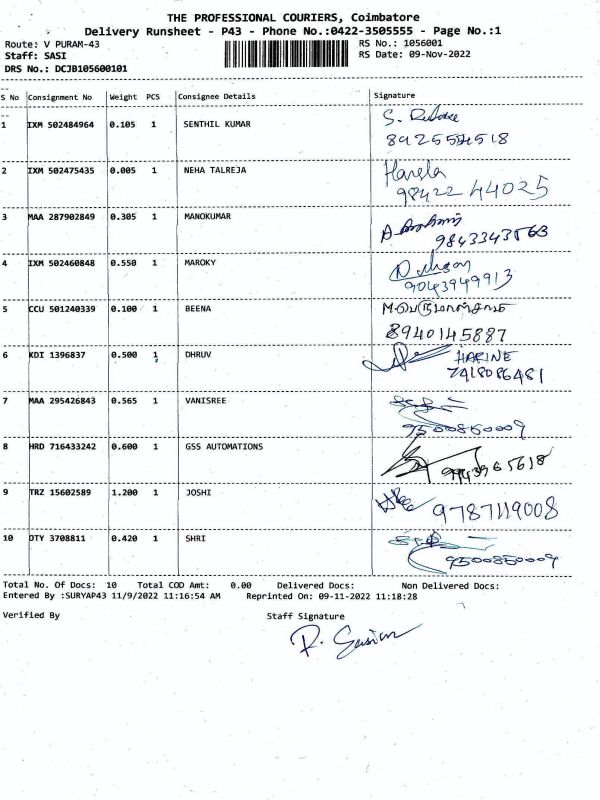 THE PROFESSIONAL COURIERS, Coimbatore
Delivery Runsheet - P43 - Phone No.:0422-3505555 - Page No.:1
Route: V PURAM-43 RS No.: 1056001
Staff: SASI RS Date: 09-Nov-2022
DRS No.: DCJB105600101
S No Consignment No Weight PCS Consignee Details Signature
1 IXM 502484964 0.105 1 SENTHIL KUMAR S.
2 IXM 502475435 0.005 1 NEHA TALREJA
98422 44025
3 MAA 287902849 0.305 1 MANOKUMAR
4 IXM 502460848 0.550 1 MAROKY
9043949913
5 CCU 501240339 0.100 1 BEENA
8940145887
6 KDI 1396837 0.500 1 DHRUV HARINE
7418086481
7 MAA 295426843 0.565 1 VANISREE
9500850009
8 HRD 716433242 0.600 1 GSS AUTOMATIONS
9 TRZ 15602589 1.200 1 JOSHI
9787119008
10 DTY 3708811 0.420 1 SHRI
9500850009
Total No. Of Docs: 10 Total COD Amt: 0.00 Delivered Docs: Non Delivered Docs:
Entered By :SURYAP43 11/9/2022 11:16:54 AM Reprinted On: 09-11-2022 11:18:28
Verified By Staff Signature
R. Sasi